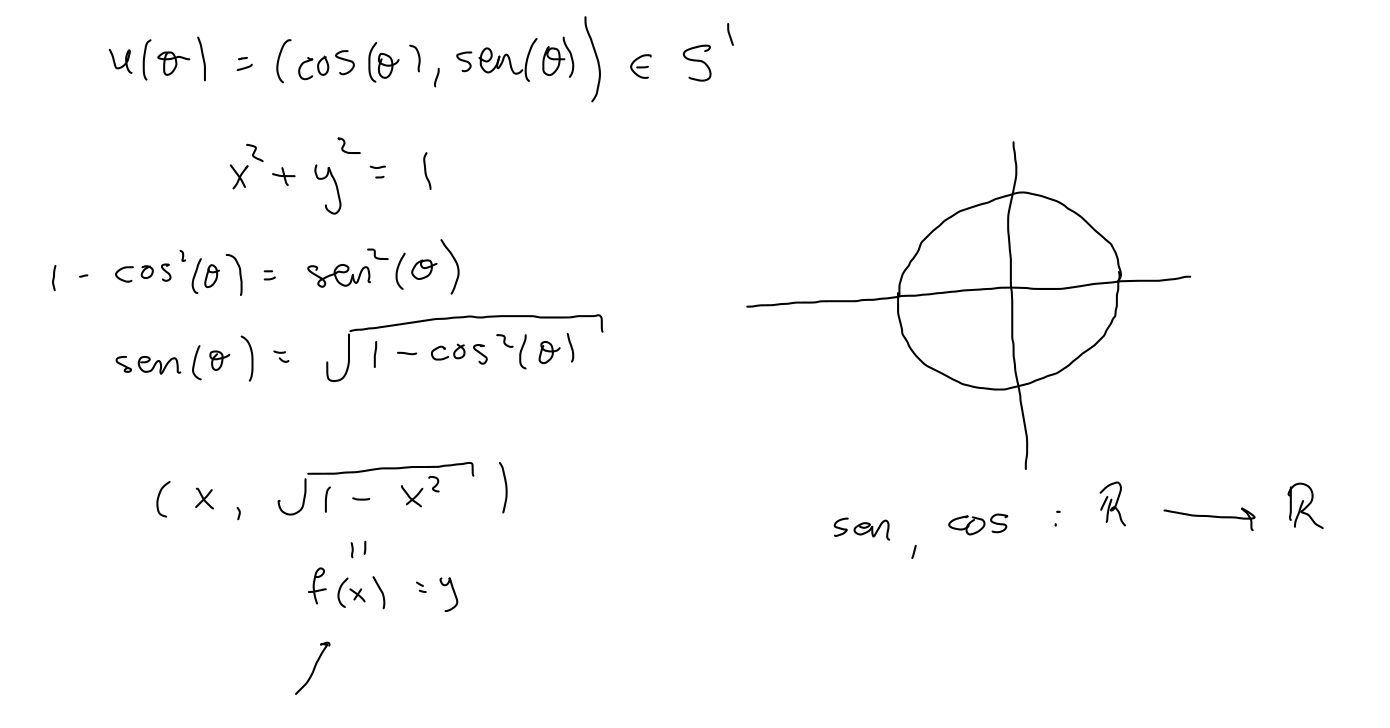 u(θ) = (cos(θ), sen(θ)) ∈ S¹
x² + y² = 1
1 - cos²(θ) = sen²(θ)
sen(θ) = √(1 - cos²(θ))
(x, √(1 - x²))
=
f(x) = y
sen, cos : ℝ ⟶ ℝ